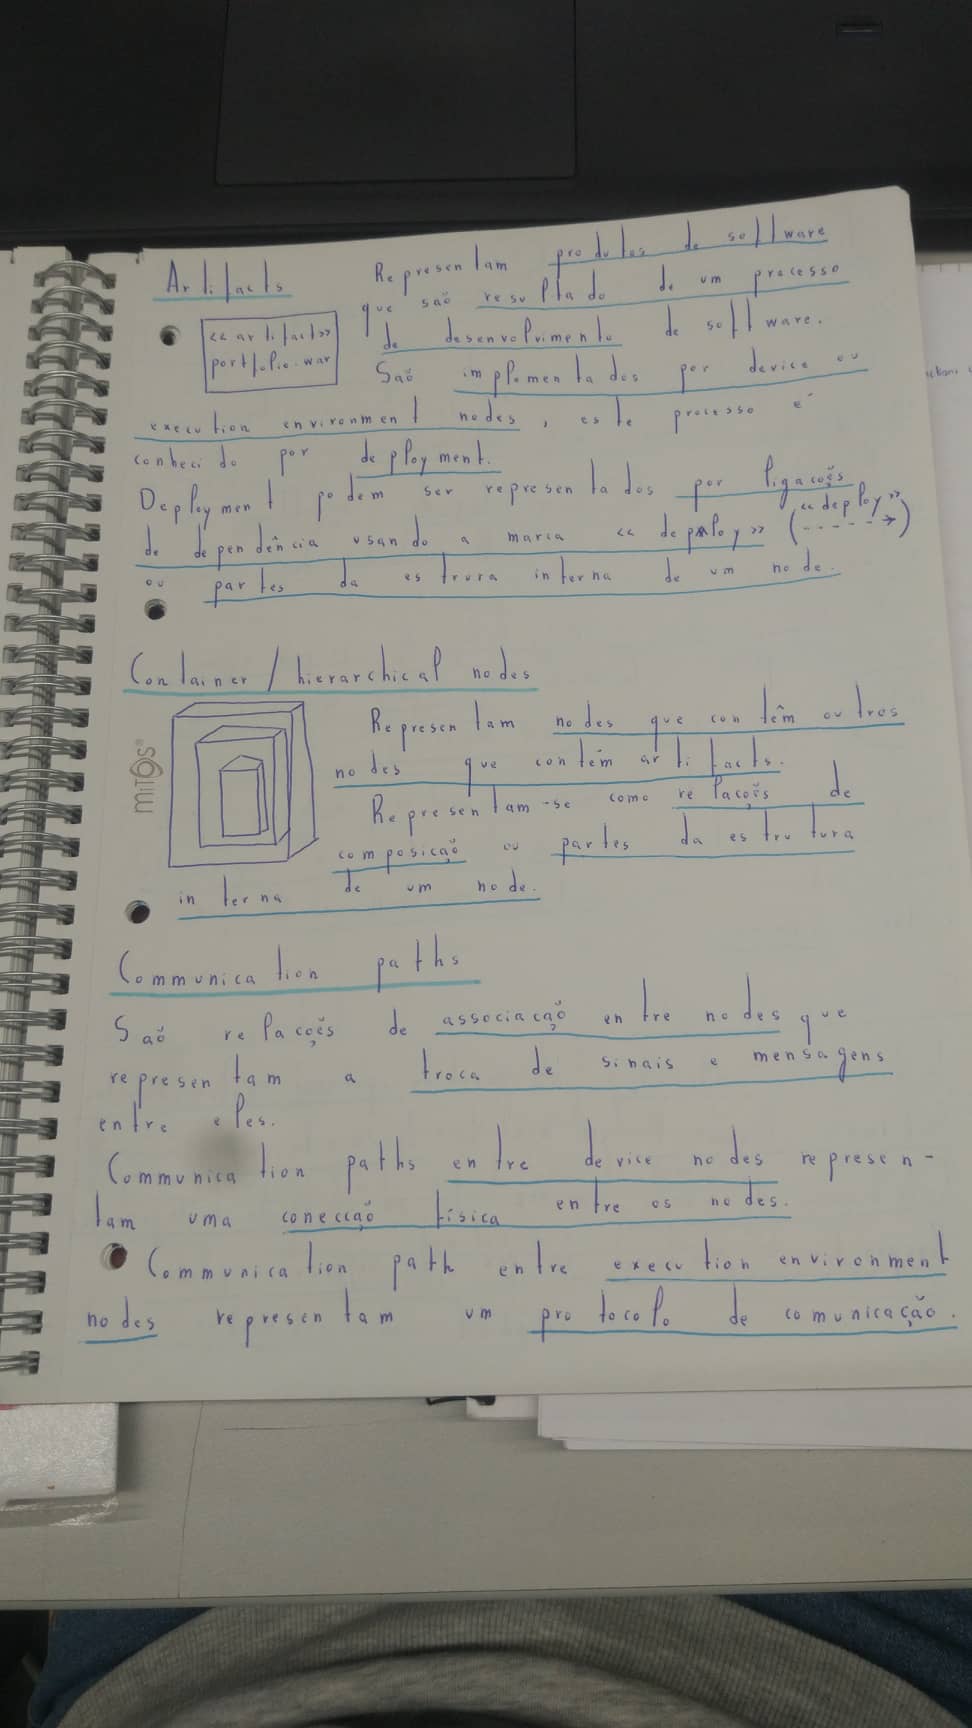 Artifacts
Representam produtos de software
que são resultado de um processo
de desenvolvimento de software.
<< artifact>>
portfolio.war
São implementados por device ou
execution environment nodes, este processo é
conhecido por deployment.
Deployment podem ser representados por ligações
de dependência usando a marca << deploy >> (<< deploy >> - - - - ->)
ou partes da estrura interna de um node.
Container / hierarchical nodes
Representam nodes que contêm outros
nodes que contém artifacts.
Representam-se como relações de
composição ou partes da estrutura
interna de um node.
mitos®
Communication paths
São relações de associação entre nodes que
representam a troca de sinais e mensagens
entre eles.
Communication paths entre device nodes represen-
tam uma conecção física entre os nodes.
Communication path entre execution environment
nodes representam um protocolo de comunicação.